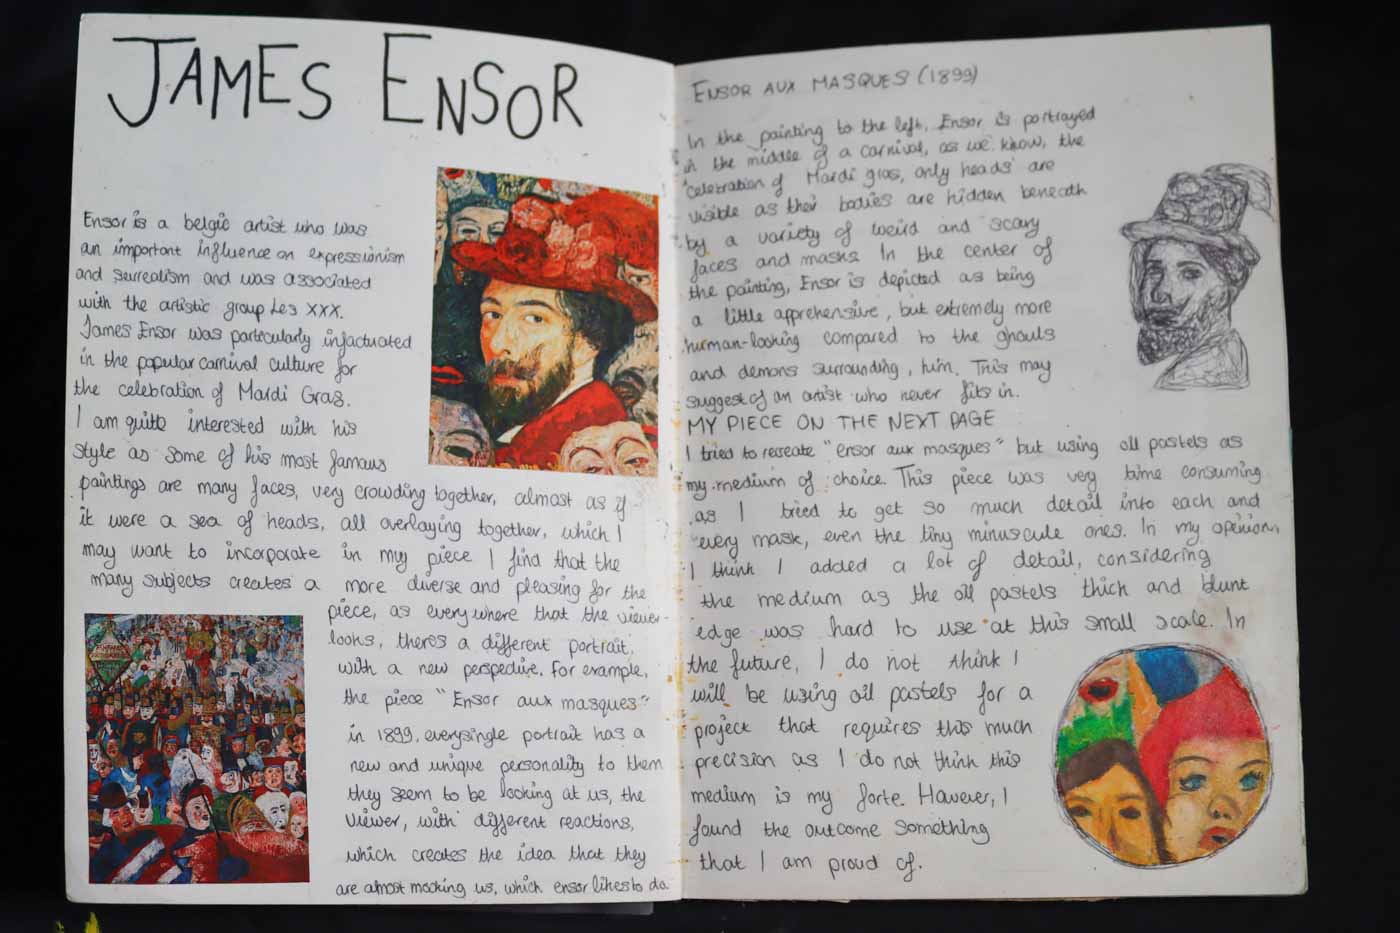 JAMES ENSOR
Ensor is a belgic artist who was
an important influence on expressionism
and surrealism and was associated
with the artistic group Les XXX.
James Ensor was particularly infactuated
in the popular carnival culture for
the celebration of Mardi Gras.
I am quite interested with his
style as some of his most famous
paintings are many faces, very crowding together, almost as if
it were a sea of heads, all overlaying together, which I
may want to incorporate in my piece I find that the
many subjects creates a more diverse and pleasing for the
piece, as everywhere that the viewer
looks, theres a different portrait,
with a new perspective. For example,
the piece "Ensor aux masques"
in 1899. everysingle portrait has a
new and unique personality to them
they seem to be looking at us, the
viewer, with different reactions,
which creates the idea that they
are almost mocking us, which ensor likes to do
ENSOR AUX MASQUES (1899)
In the painting to the left, Ensor is portrayed
in the middle of a carnival, as we know, the
celebration of Mardi gras, only heads are
visible as their bodies are hidden beneath
by a variety of weird and scary
faces and masks In the center of
the painting, Ensor is depicted as being
a little apprehensive, but extremely more
human-looking compared to the ghouls
and demons surrounding him. This may
suggest of an artist who never fits in.
MY PIECE ON THE NEXT PAGE
I tried to recreate "ensor aux masques" but using oil pastels as
my medium of choice. This piece was very time consuming
as I tried to get so much detail into each and
every mask, even the tiny minuscule ones. In my opinion,
I think I added a lot of detail, considering
the medium as the oil pastels thick and blunt
edge was hard to use at this small scale. In
the future, I do not think I
will be using oil pastels for a
project that requires this much
precision as I do not think this
medium is my forte. However, I
found the outcome something
that I am proud of.